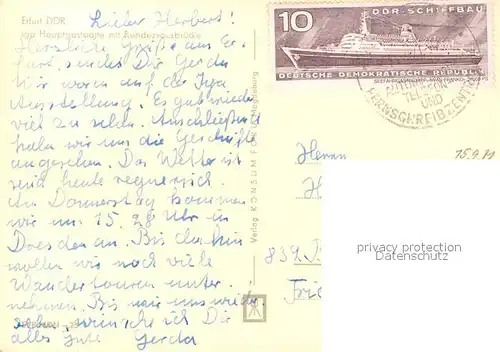 Erfurt DDR
iga Hauptgaststätte mit Rundenausbrücke
Lieber Herbert!
Herzliche Grüße aus Er-
furt sendet Dir Gerda
Wir waren auf der Iga
Ausstellung. Es gab wieder
viel zu sehen. Anschließend
haben wir uns die Geschäfte
angesehen. Das Wetter ist
seid heute regnerisch.
Am Donnerstag kommen
wir um 15.28 Uhr in
Dresden an. Bis dahin
wollen wir noch viele
Wandertouren unter-
nehmen. Bis wir uns wieder
sehn, wünsche ich Dir
alles gute Gerda
Verlag KONSUM Magdeburg
10
DDR-SCHIFFBAU
DEUTSCHE DEMOKRATISCHE REPUBLIK
TELEFON
UND
FERNSCHREIBZENTR
15.9.71
Herrn
H
839
privacy protection
watermark